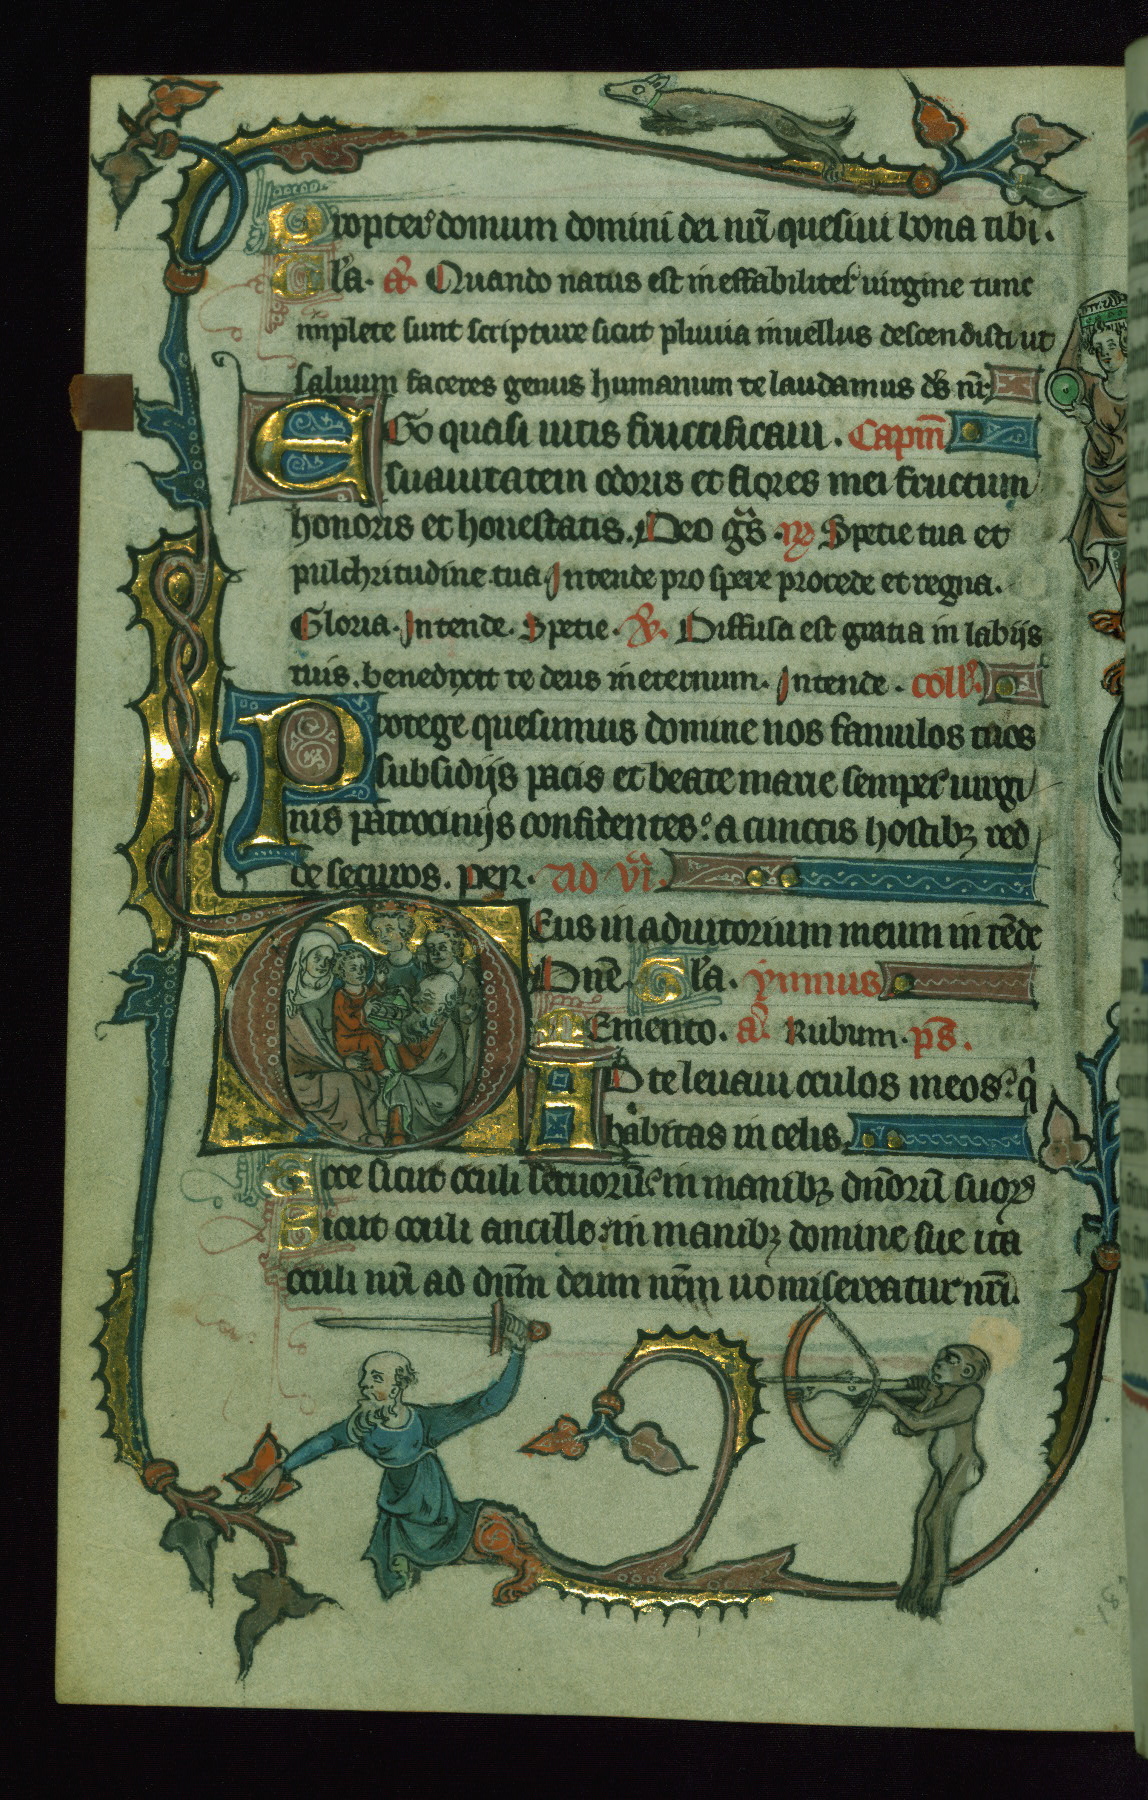 Propter domum domini dei nr̄i quesiui bona tibi.
Gl'a. a. Quando natus est ineffabiliter uirgine tunc
implete sunt scripture sicut pluuia in uellus descendisti ut
saluum faceres genus humanum te laudamus ds̄ nr̄.
EGo quasi uitis fructificaui. Capm̄
suauitatem odoris et flores mei fructum
honoris et honestatis. Deo gr̄s. R̄ Spetie tua et
pulchritudine tua Intende prospere procede et regna.
Gloria. Intende. Spetie. V. Diffusa est gratia in labijs
tuis. benedixit te deus in eternum. Intende. coll'.
Protege quesumus domine nos famulos tuos
subsidijs pacis et beate marie semper uirgi
nis patrocinijs confidentes. a cunctis hostibꝫ red
de securos. per. ad vi.
Deus in adiutorium meum intēde
Dnē. Gl'a. ymnus
Memento. a. Rubum. ps̄.
AD te leuaui oculos meos. qi
habitas in celis
Ecce sicut oculi seruorū. in manibꝫ dn̄orū suoꝝ
Sicut oculi ancille. in manibꝫ domine sue ita
oculi nr̄i ad dn̄m deum nr̄m do misereatur nr̄i.